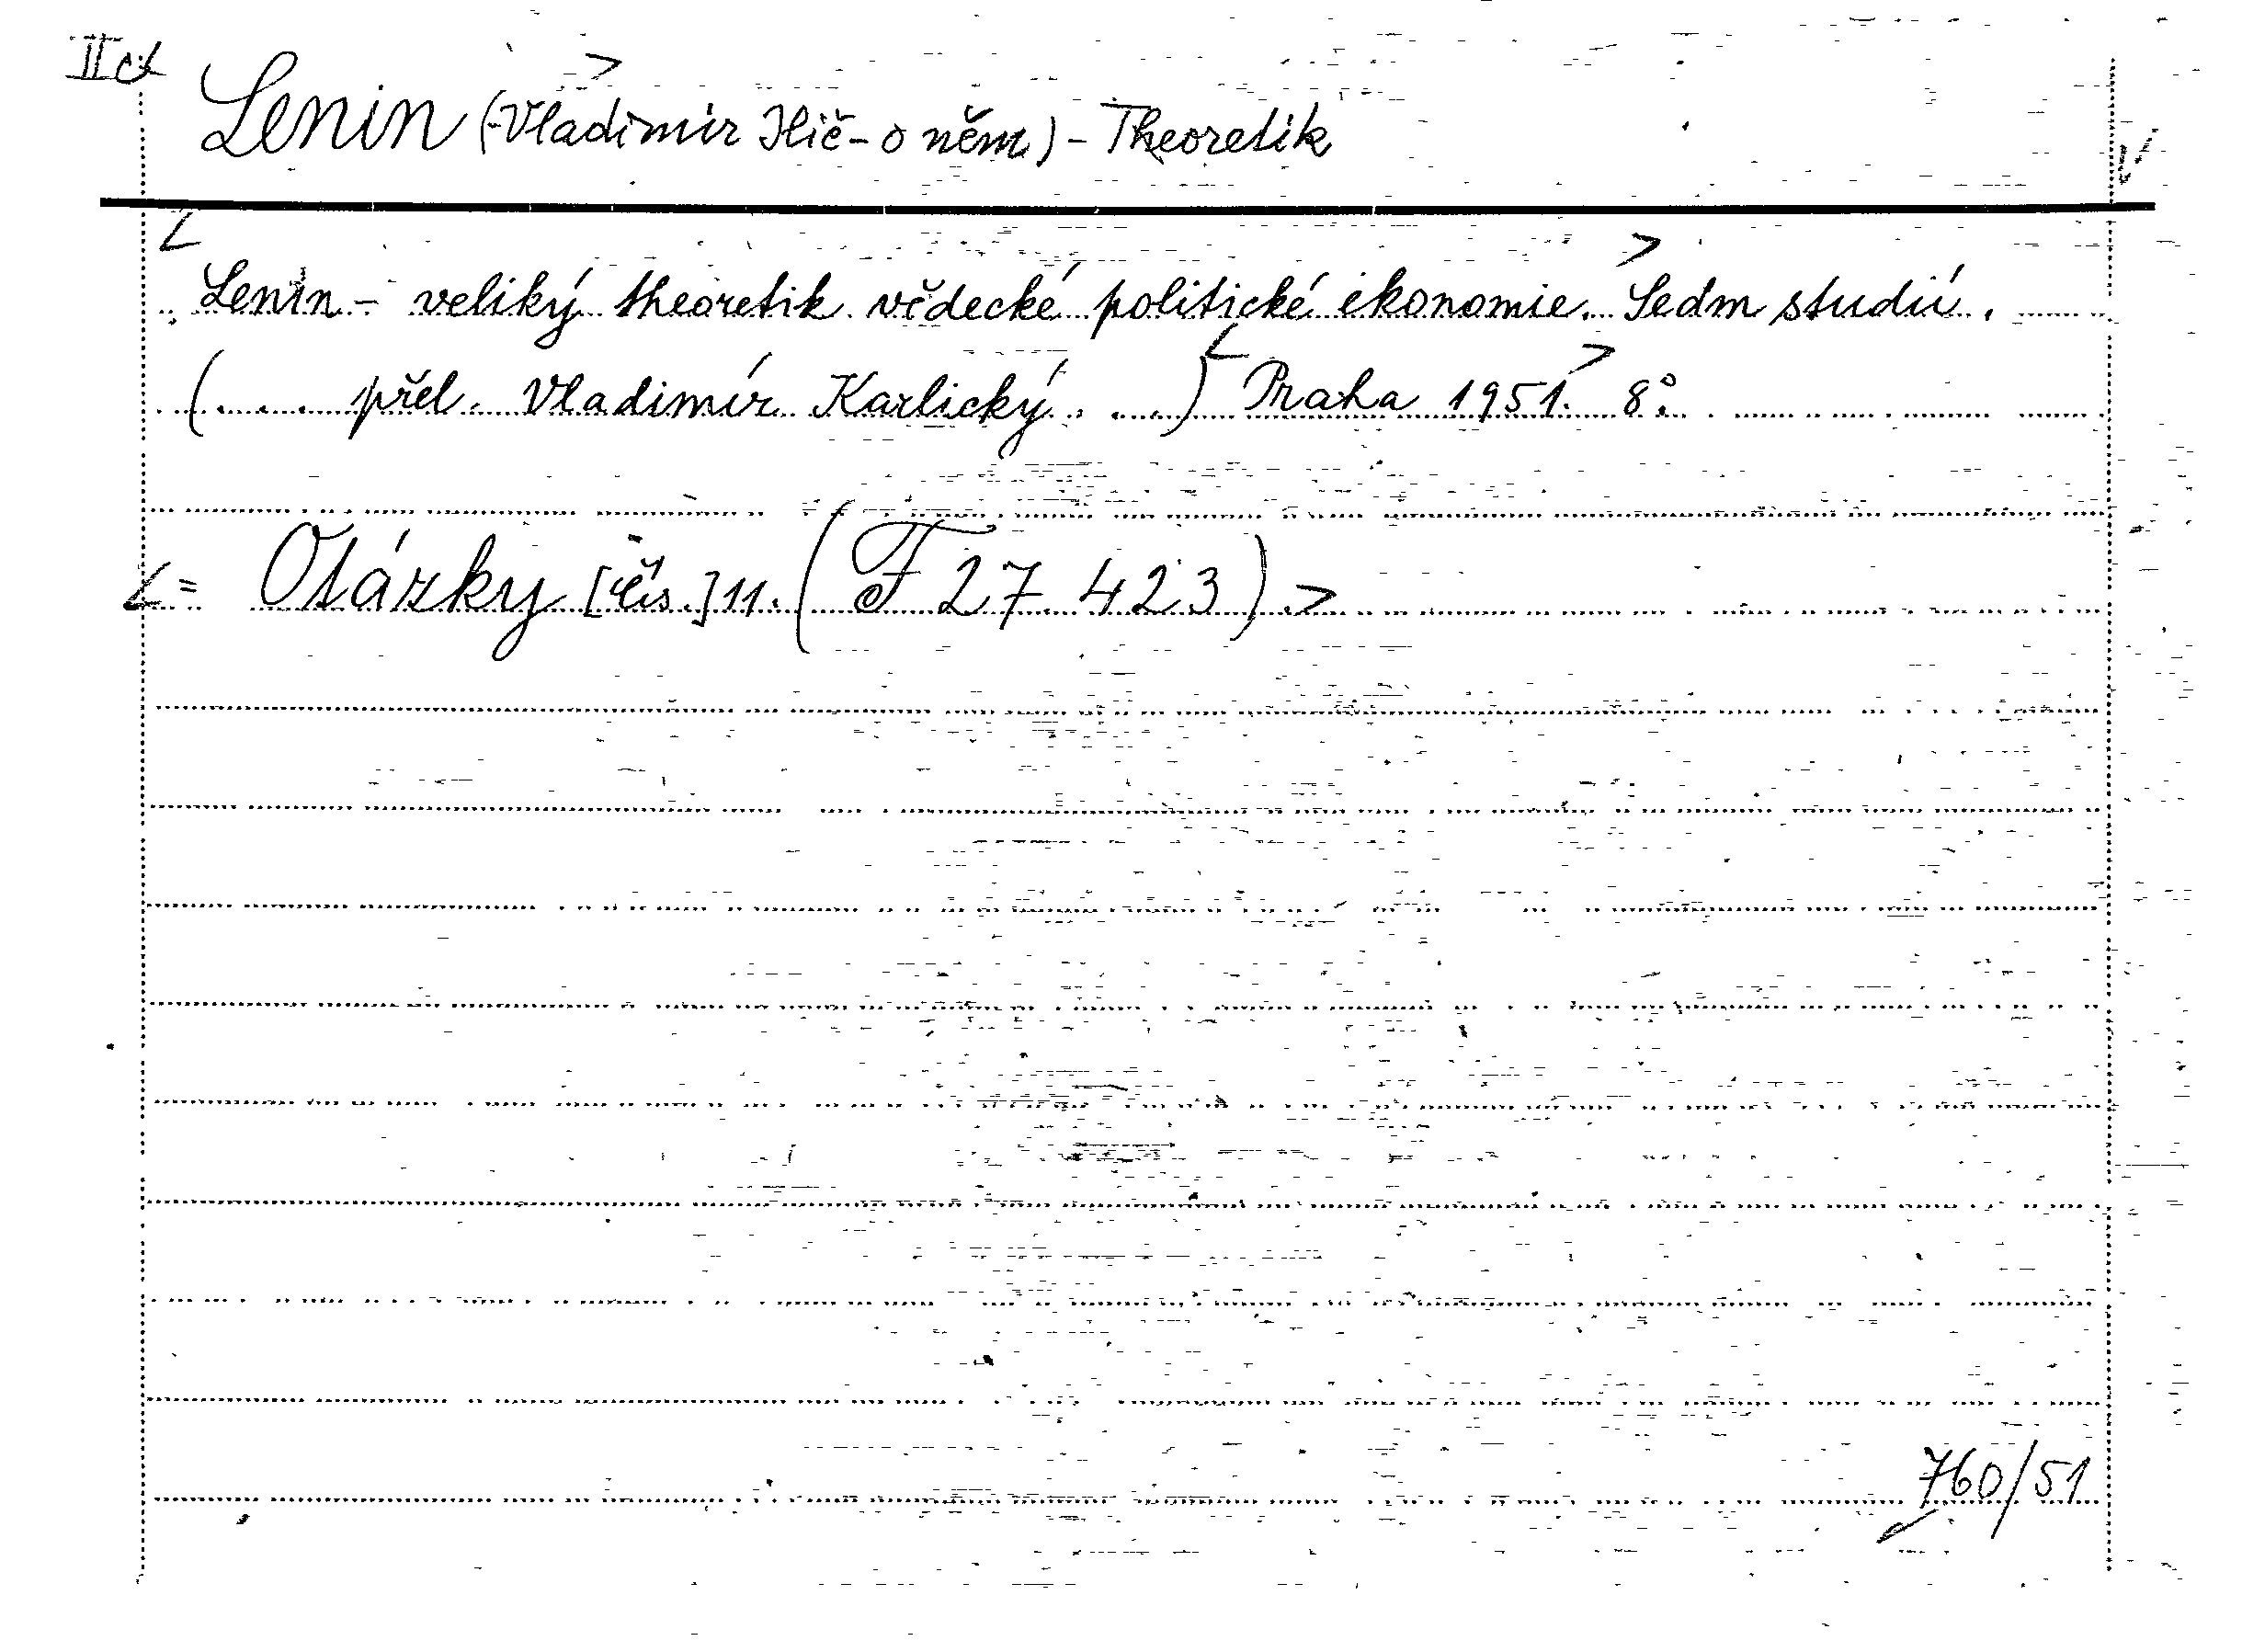 II
Lenin (Vladimír Ilič - o něm) - Theoretik
Lenin - veliký theoretik vědecké politické ekonomie. Sedm studií.
(... přel. Vladimír Karlický ...) Praha 1951. 8°.
= Otázky [čís.] 11. (F 27 423)
760/51